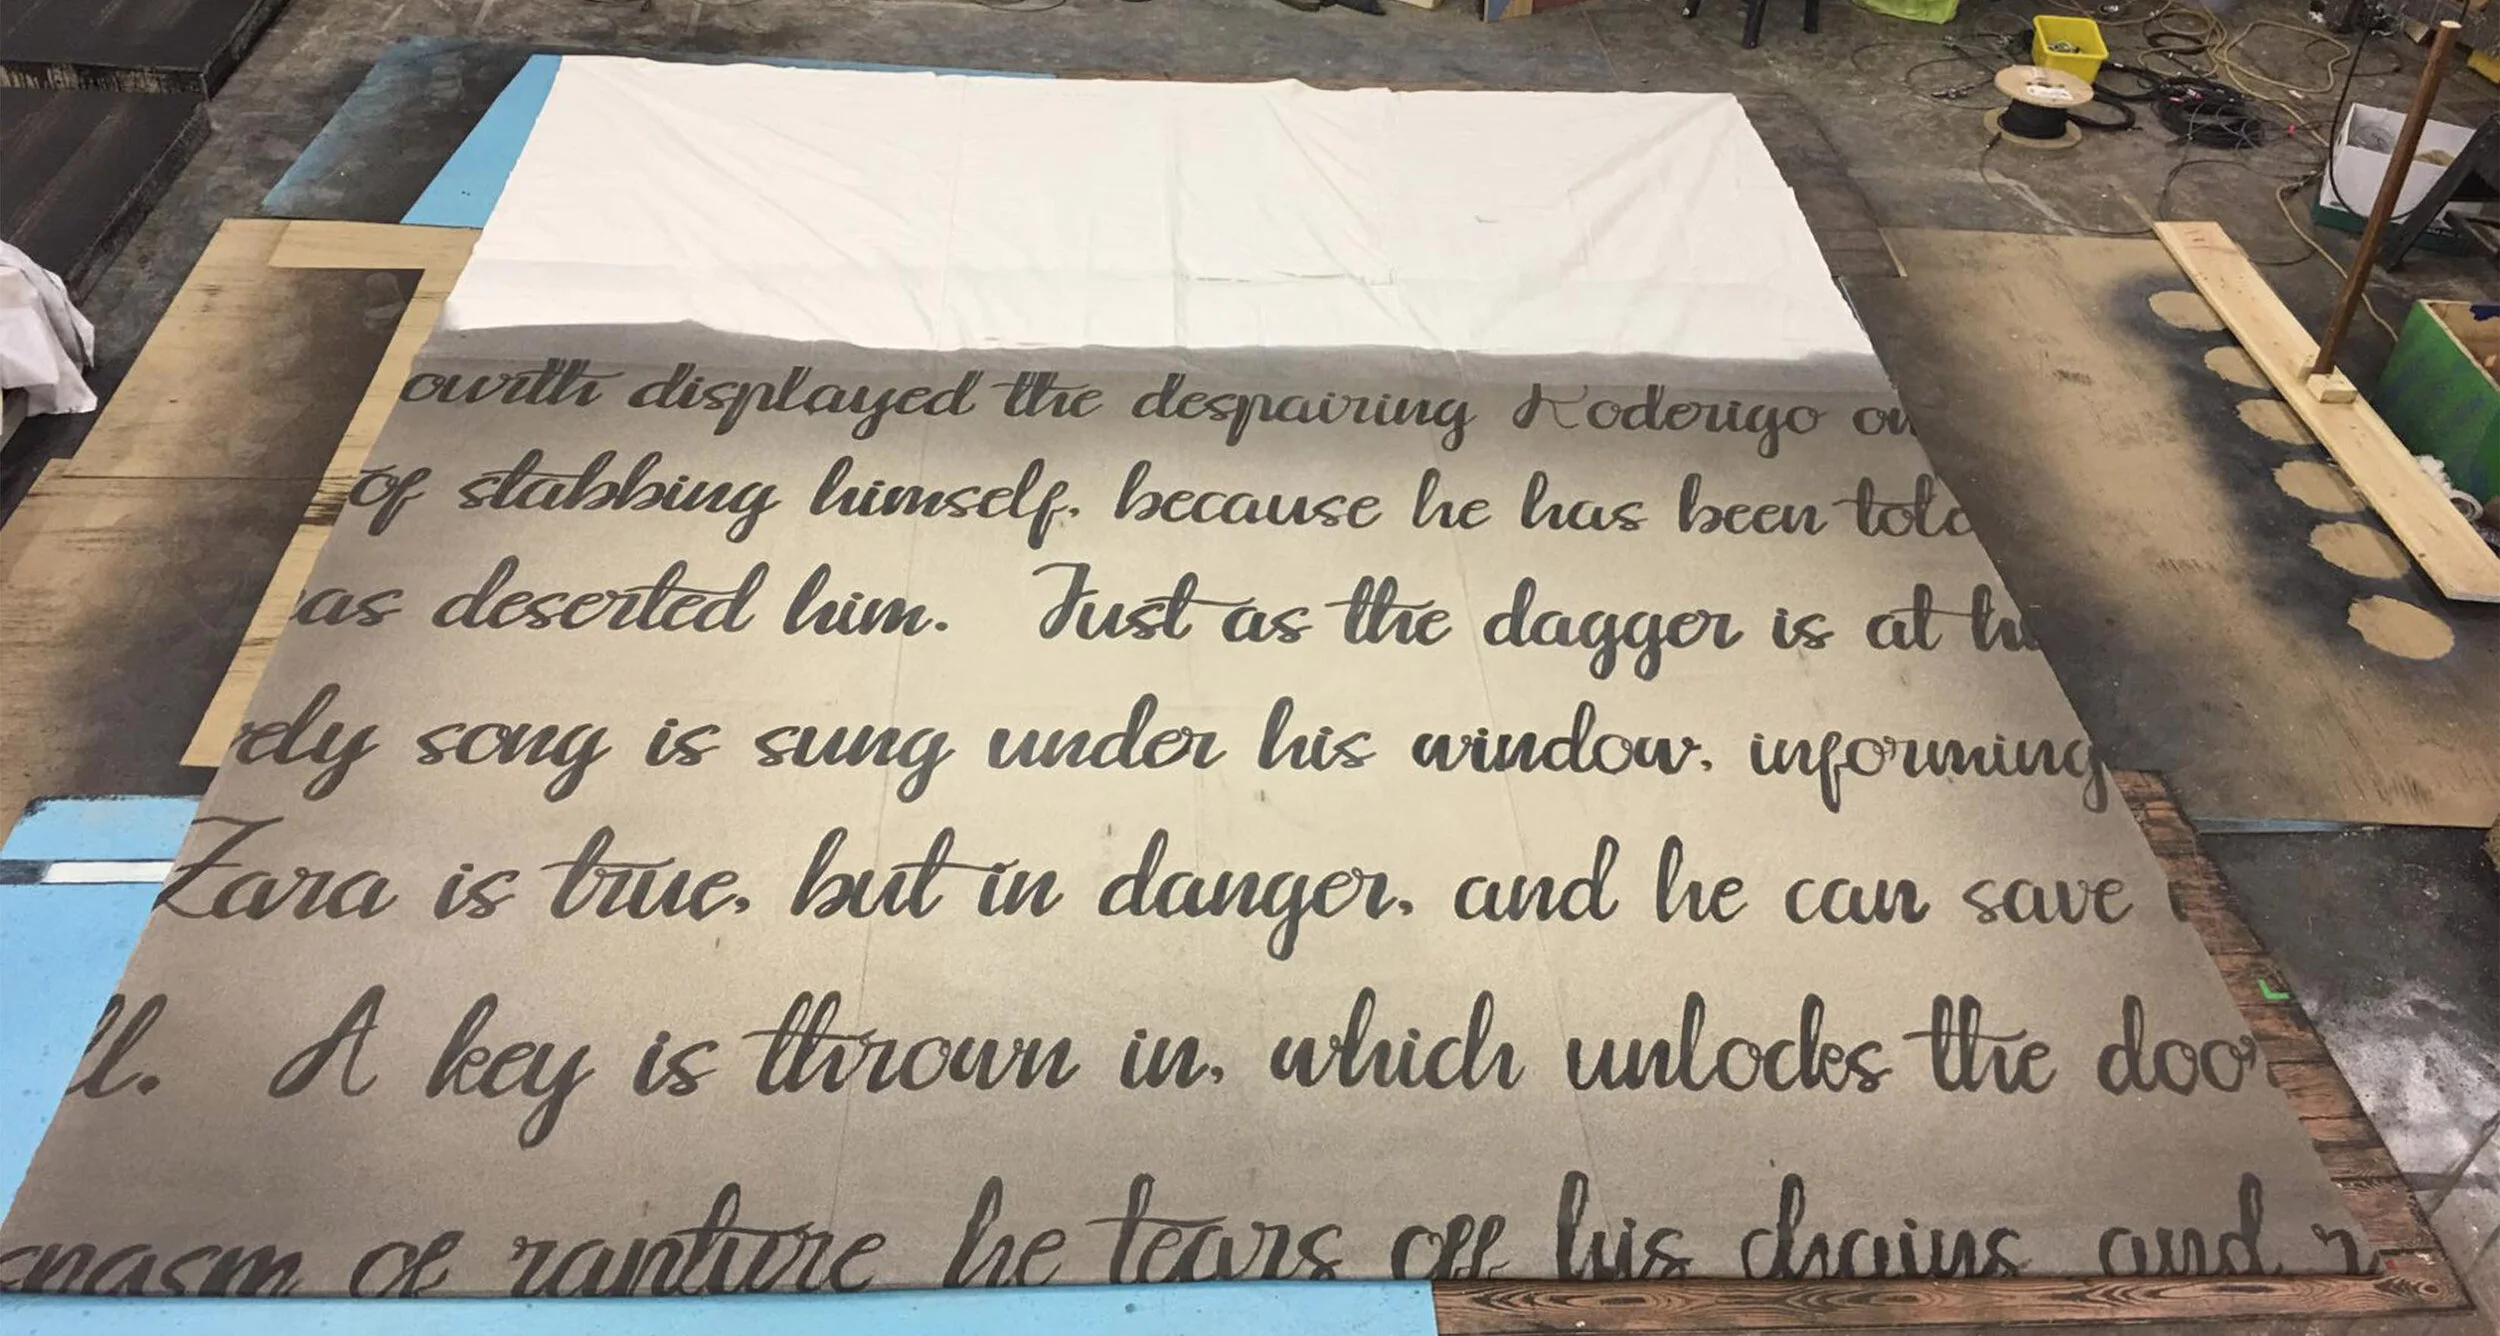 ourth displayed the despairing Roderigo on
of stabbing himself, because he has been told
as deserted him. Just as the dagger is at hi
ely song is sung under his window, informing
Zara is true, but in danger, and he can save
ll. A key is thrown in, which unlocks the door
spasm of rapture he tears off his chains and r